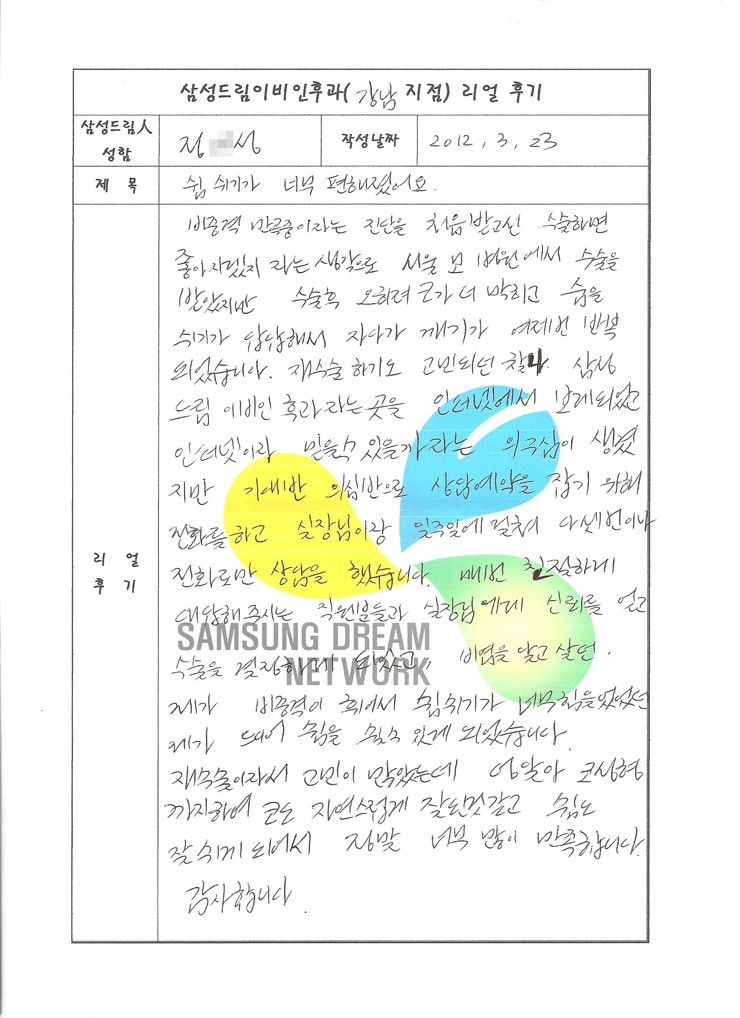 삼성드림이비인후과(강남 지점) 리얼 후기
삼성드림人
성함
정 성
작성날짜
2012. 3. 23
제 목
쉼 쉬기가 너무 편해졌어요.
리 얼
후 기
비중격 만곡증이라는 진단을 처음받고선 수술하면
좋아지겠지 라는 생각으로 서울 모 병원에서 수술을
받았지만 수술후 오히려 코가 더 막히고 숨을
쉬기가 답답해서 자다가 깨기가 여러번 반복
되었습니다. 재수술 하기도 고민되던 찰나 삼성
드림 이비인 후과 라는 곳을 인터넷에서 보게되었고
인터넷이라 믿을수 있을까라는 의구심이 생겼
지만 기대반 의심반으로 상담예약을 잡기 위해
전화를하고 실장님이랑 일주일에 걸쳐 다섯번이나
전화로만 상담을 했습니다. 매번 친절하게
대답해 주시는 직원분들과 실장님에게 신뢰를 얻고
수술을 결정하게 되었고, 비염을 앓고 살던.
제가 비중격이 휘어서 쉼쉬기가 너무힘들었었던
제가 드디어 쉼을 쉴수 있게 되었습니다.
재수술이라서 고민이 많았는데 코성형
까지하여 코도 자연스럽게 잘된것같고 쉼도
잘 쉬게 되어서 정말 너무 많이 만족합니다.
감사합니다.
SAMSUNG DREAM
NETWORK